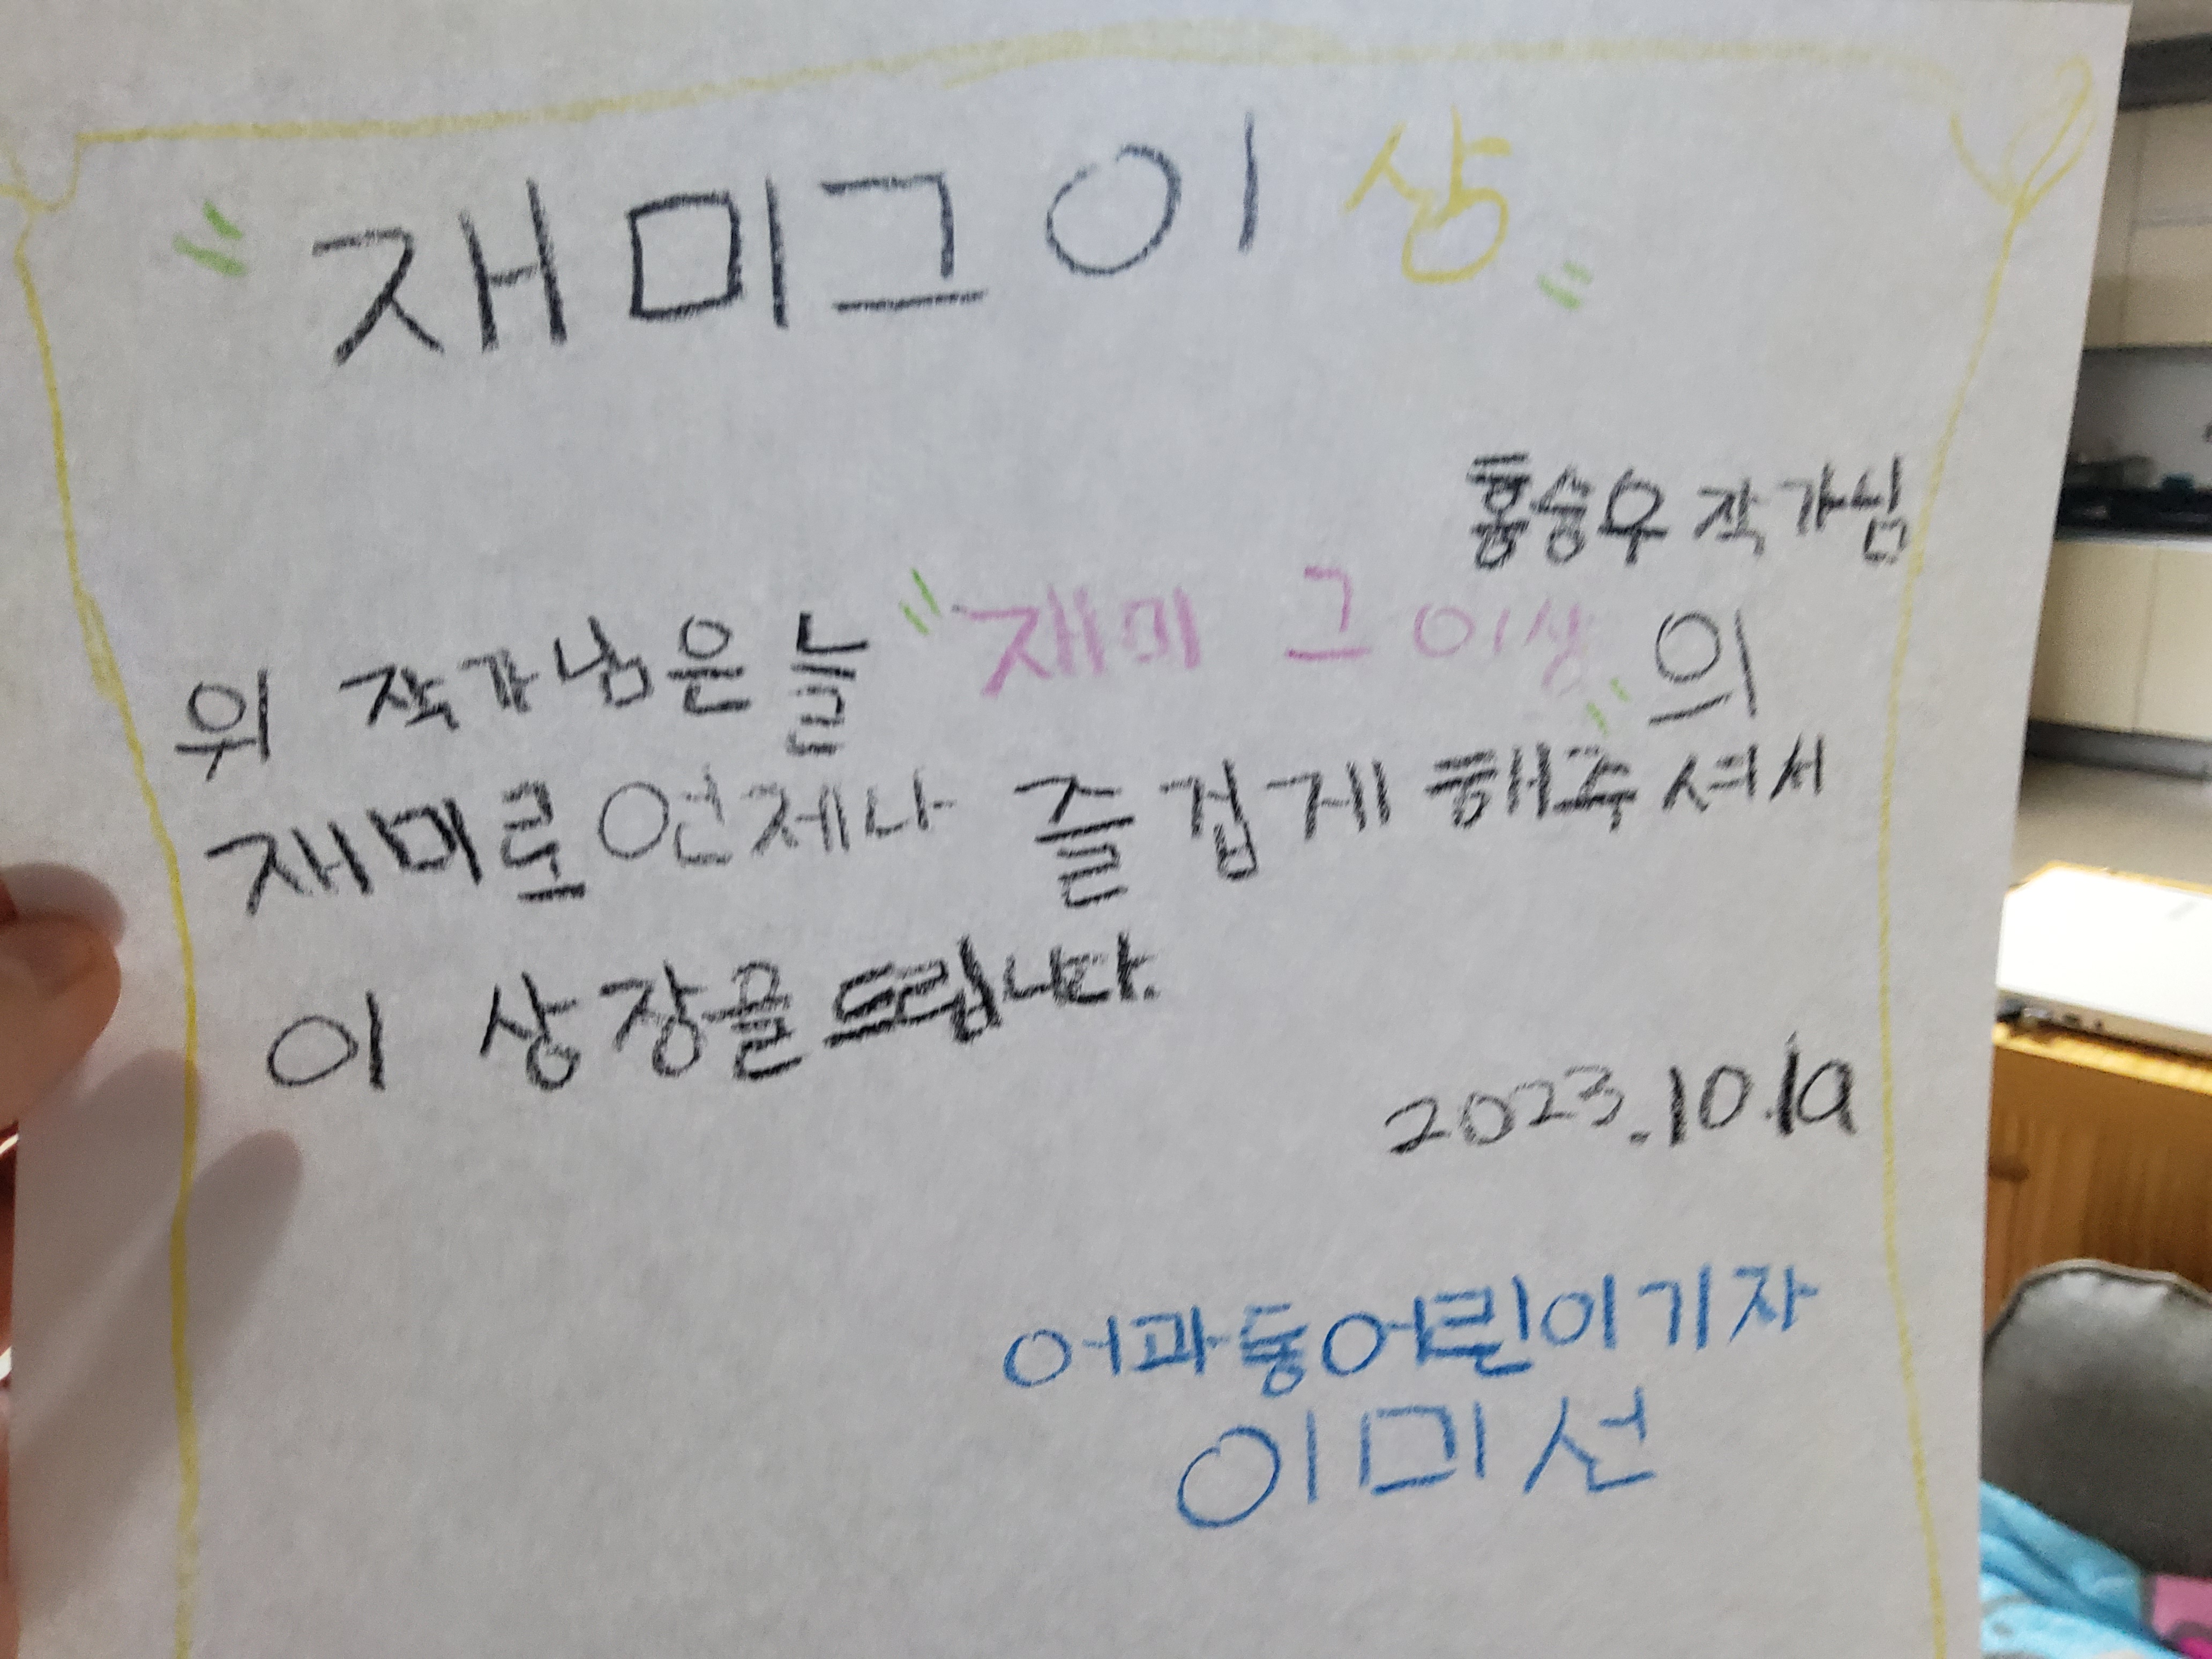 "재미그이상"
홍승우 작가님
위 작가님은 늘 "재미 그 이상"의
재미로 언제나 즐겁게 해주셔서
이 상장을 드립니다.
2023.10.19
어과동어린이기자
이미선